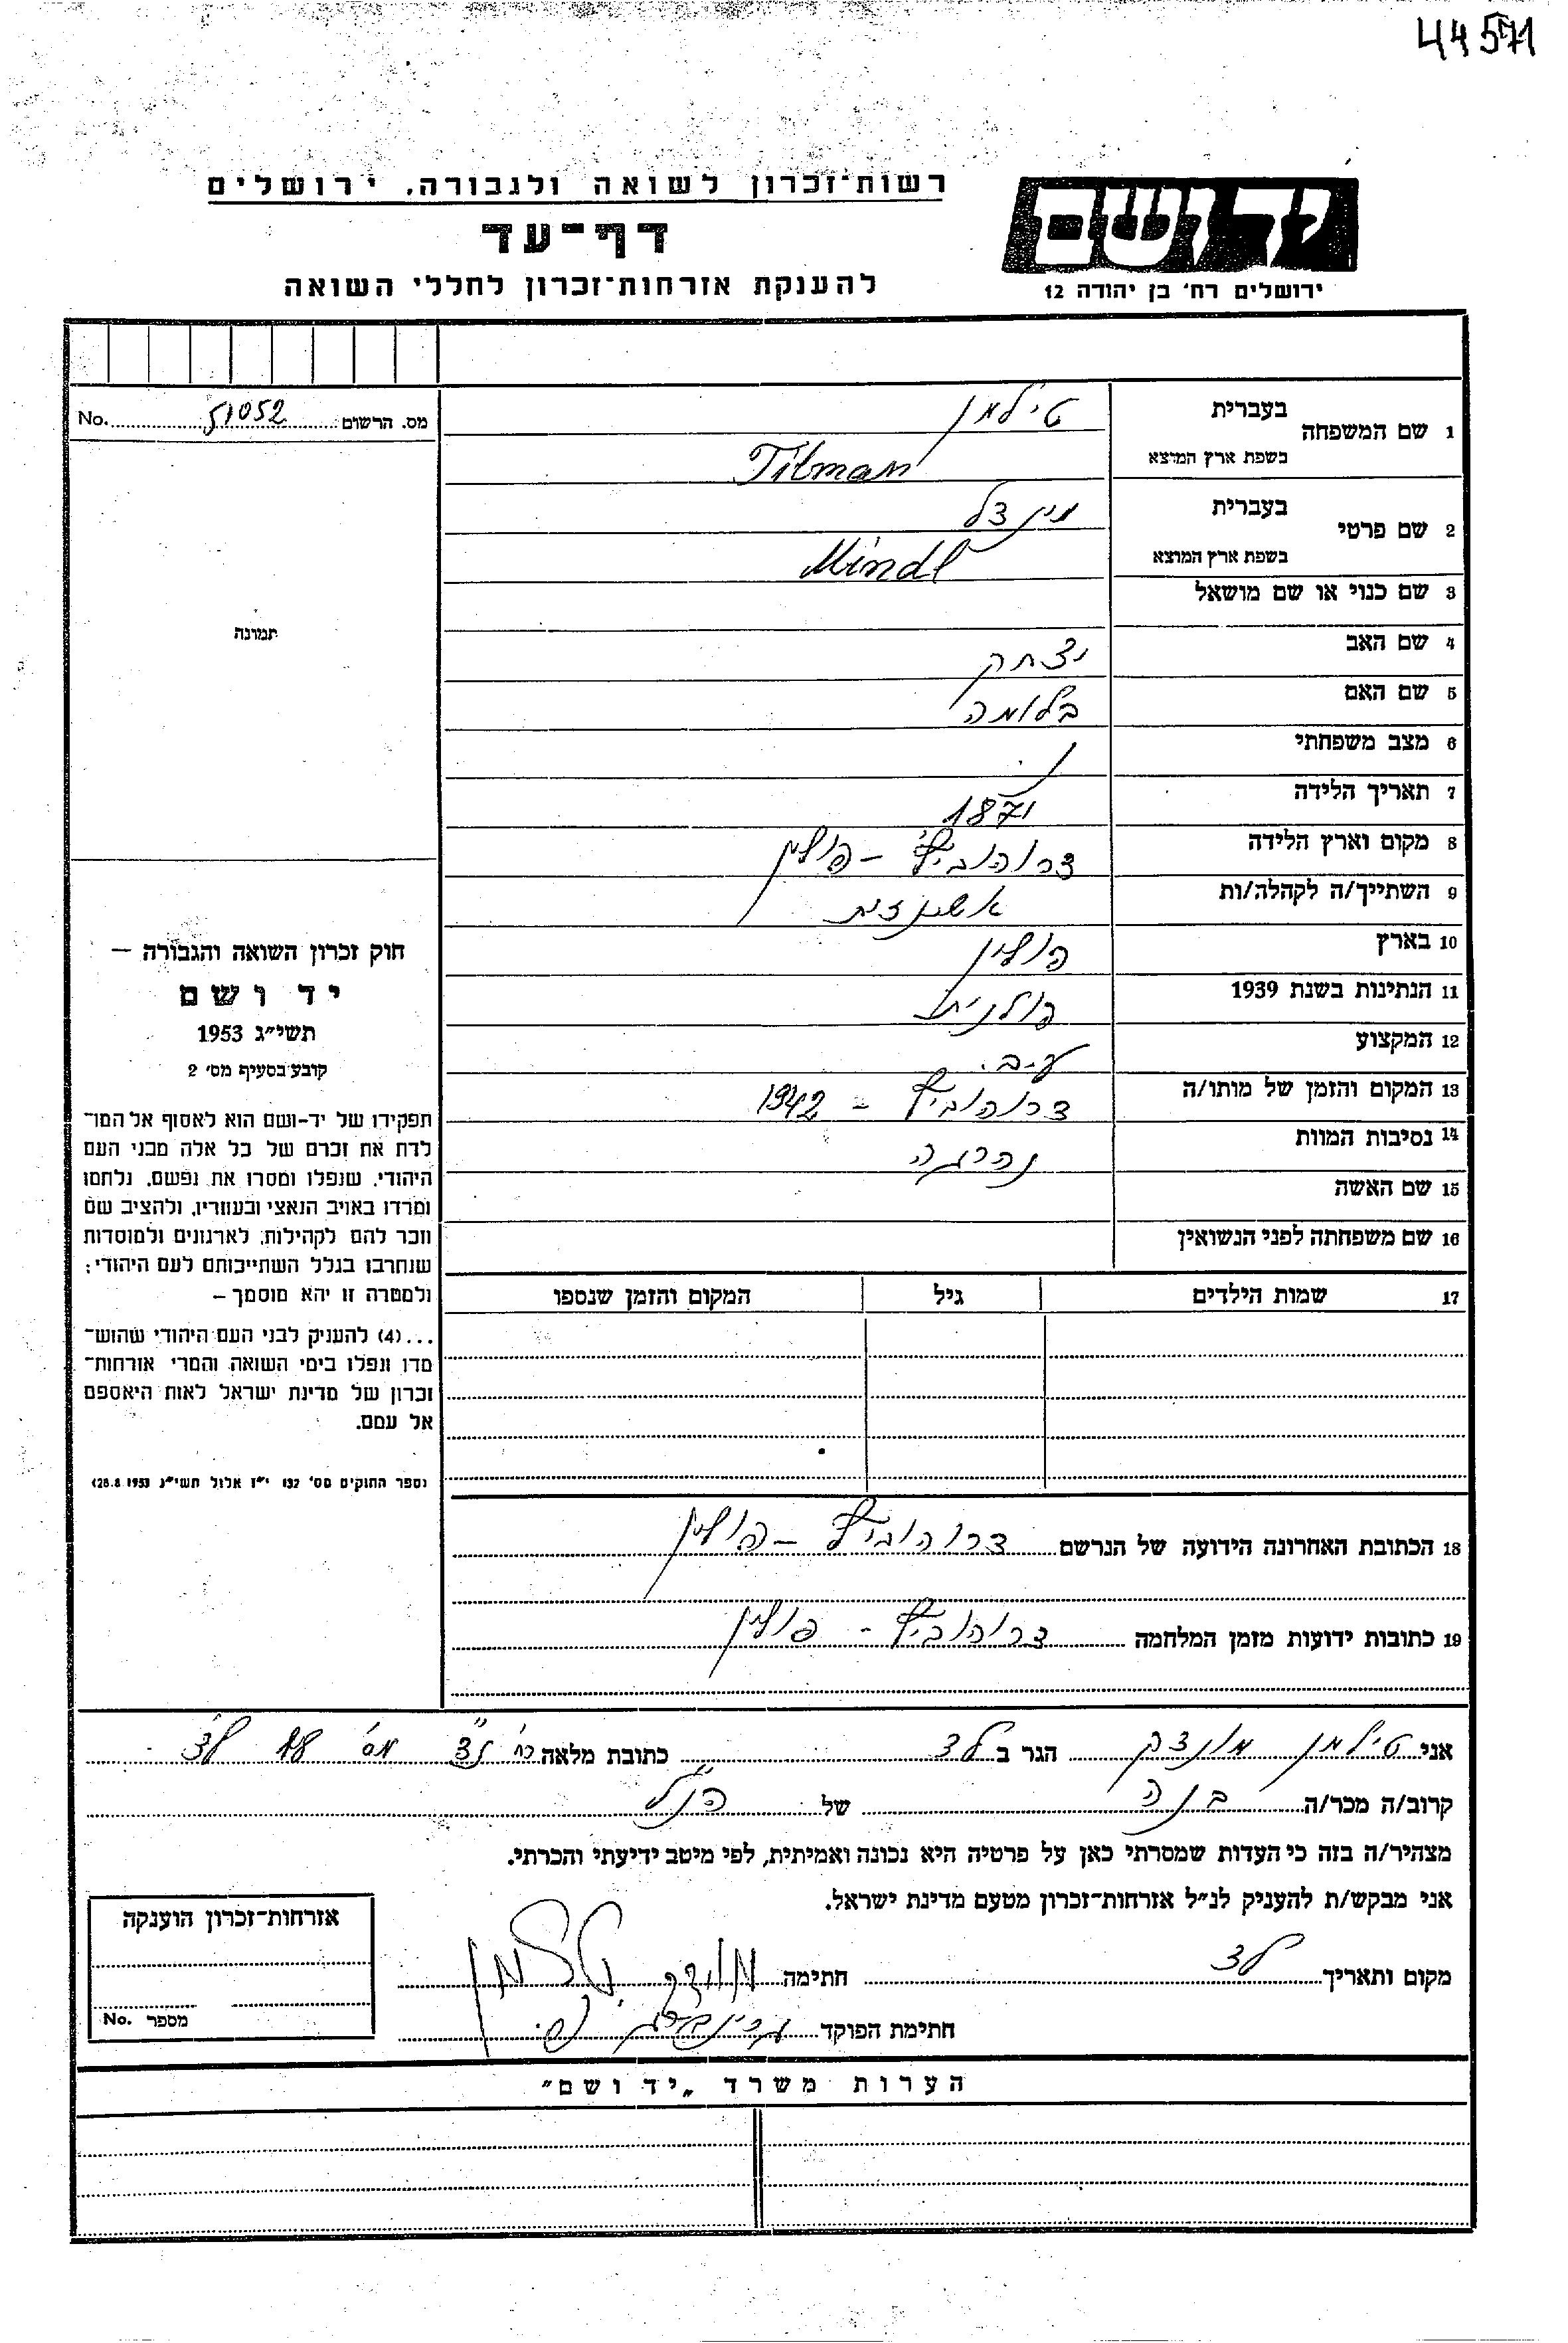 44571
רשות־זכרון לשואה ולגבורה, ירושלים
יד ושם
דף־עד
להענקת אזרחות־זכרון לחללי השואה
ירושלים רח' בן יהודה 12
מס. הרשום 51052 No.
תמונה
1 שם המשפחה
בעברית טילמן
בשפת ארץ המוצא Tilman
2 שם פרטי
בעברית מינדל
בשפת ארץ המוצא Mindl
3 שם כנוי או שם מושאל
4 שם האב יצחק
5 שם האם בלומה
6 מצב משפחתי
7 תאריך הלידה 1871
8 מקום וארץ הלידה דרוהוביץ' – פולין
9 השתייך/ה לקהלה/ות אשכנזית
10 בארץ פולין
11 הנתינות בשנת 1939 פולנית
12 המקצוע ע.ב.
13 המקום והזמן של מותו/ה דרוהוביץ – 1942
14 נסיבות המוות נהרגה
15 שם האשה
16 שם משפחתה לפני הנשואין
17 שמות הילדים גיל המקום והזמן שנספו
חוק זכרון השואה והגבורה –
יד ושם
תשי"ג 1953
קובע בסעיף מס' 2
תפקידו של יד-ושם הוא לאסוף אל המו־
לדת את זכרם של כל אלה מבני העם
היהודי, שנפלו ומסרו את נפשם, נלחמו
ומרדו באויב הנאצי ובעוזריו, ולהציב שם
וזכר להם לקהילות, לארגונים ולמוסדות
שנחרבו בגלל השתייכותם לעם היהודי;
ולמטרה זו יהא מוסמך –
...(4) להעניק לבני העם היהודי שהוש־
מדו ונפלו בימי השואה והמרי אזרחות־
זכרון של מדינת ישראל לאות היאספם
אל עמם.
(ספר החוקים מס' 132 י"ז אלול תשי"ג 28.8.1953)
18 הכתובת האחרונה הידועה של הנרשם דרוהוביץ – פולין
19 כתובות ידועות מזמן המלחמה דרוהוביץ - פולין
אני טילמן מונדק הגר ב לד כתובת מלאה רח' נ"צ מס' לד
קרוב/ה מכר/ה בנה של הנ"ל
מצהיר/ה בזה כי העדות שמסרתי כאן על פרטיה היא נכונה ואמיתית, לפי מיטב ידיעתי והכרתי.
אני מבקש/ת להעניק לנ"ל אזרחות־זכרון מטעם מדינת ישראל.
מקום ותאריך לד חתימה טילמן
חתימת הפוקד גרינברג
אזרחות־זכרון הוענקה
מספר No.
הערות משרד „יד ושם"